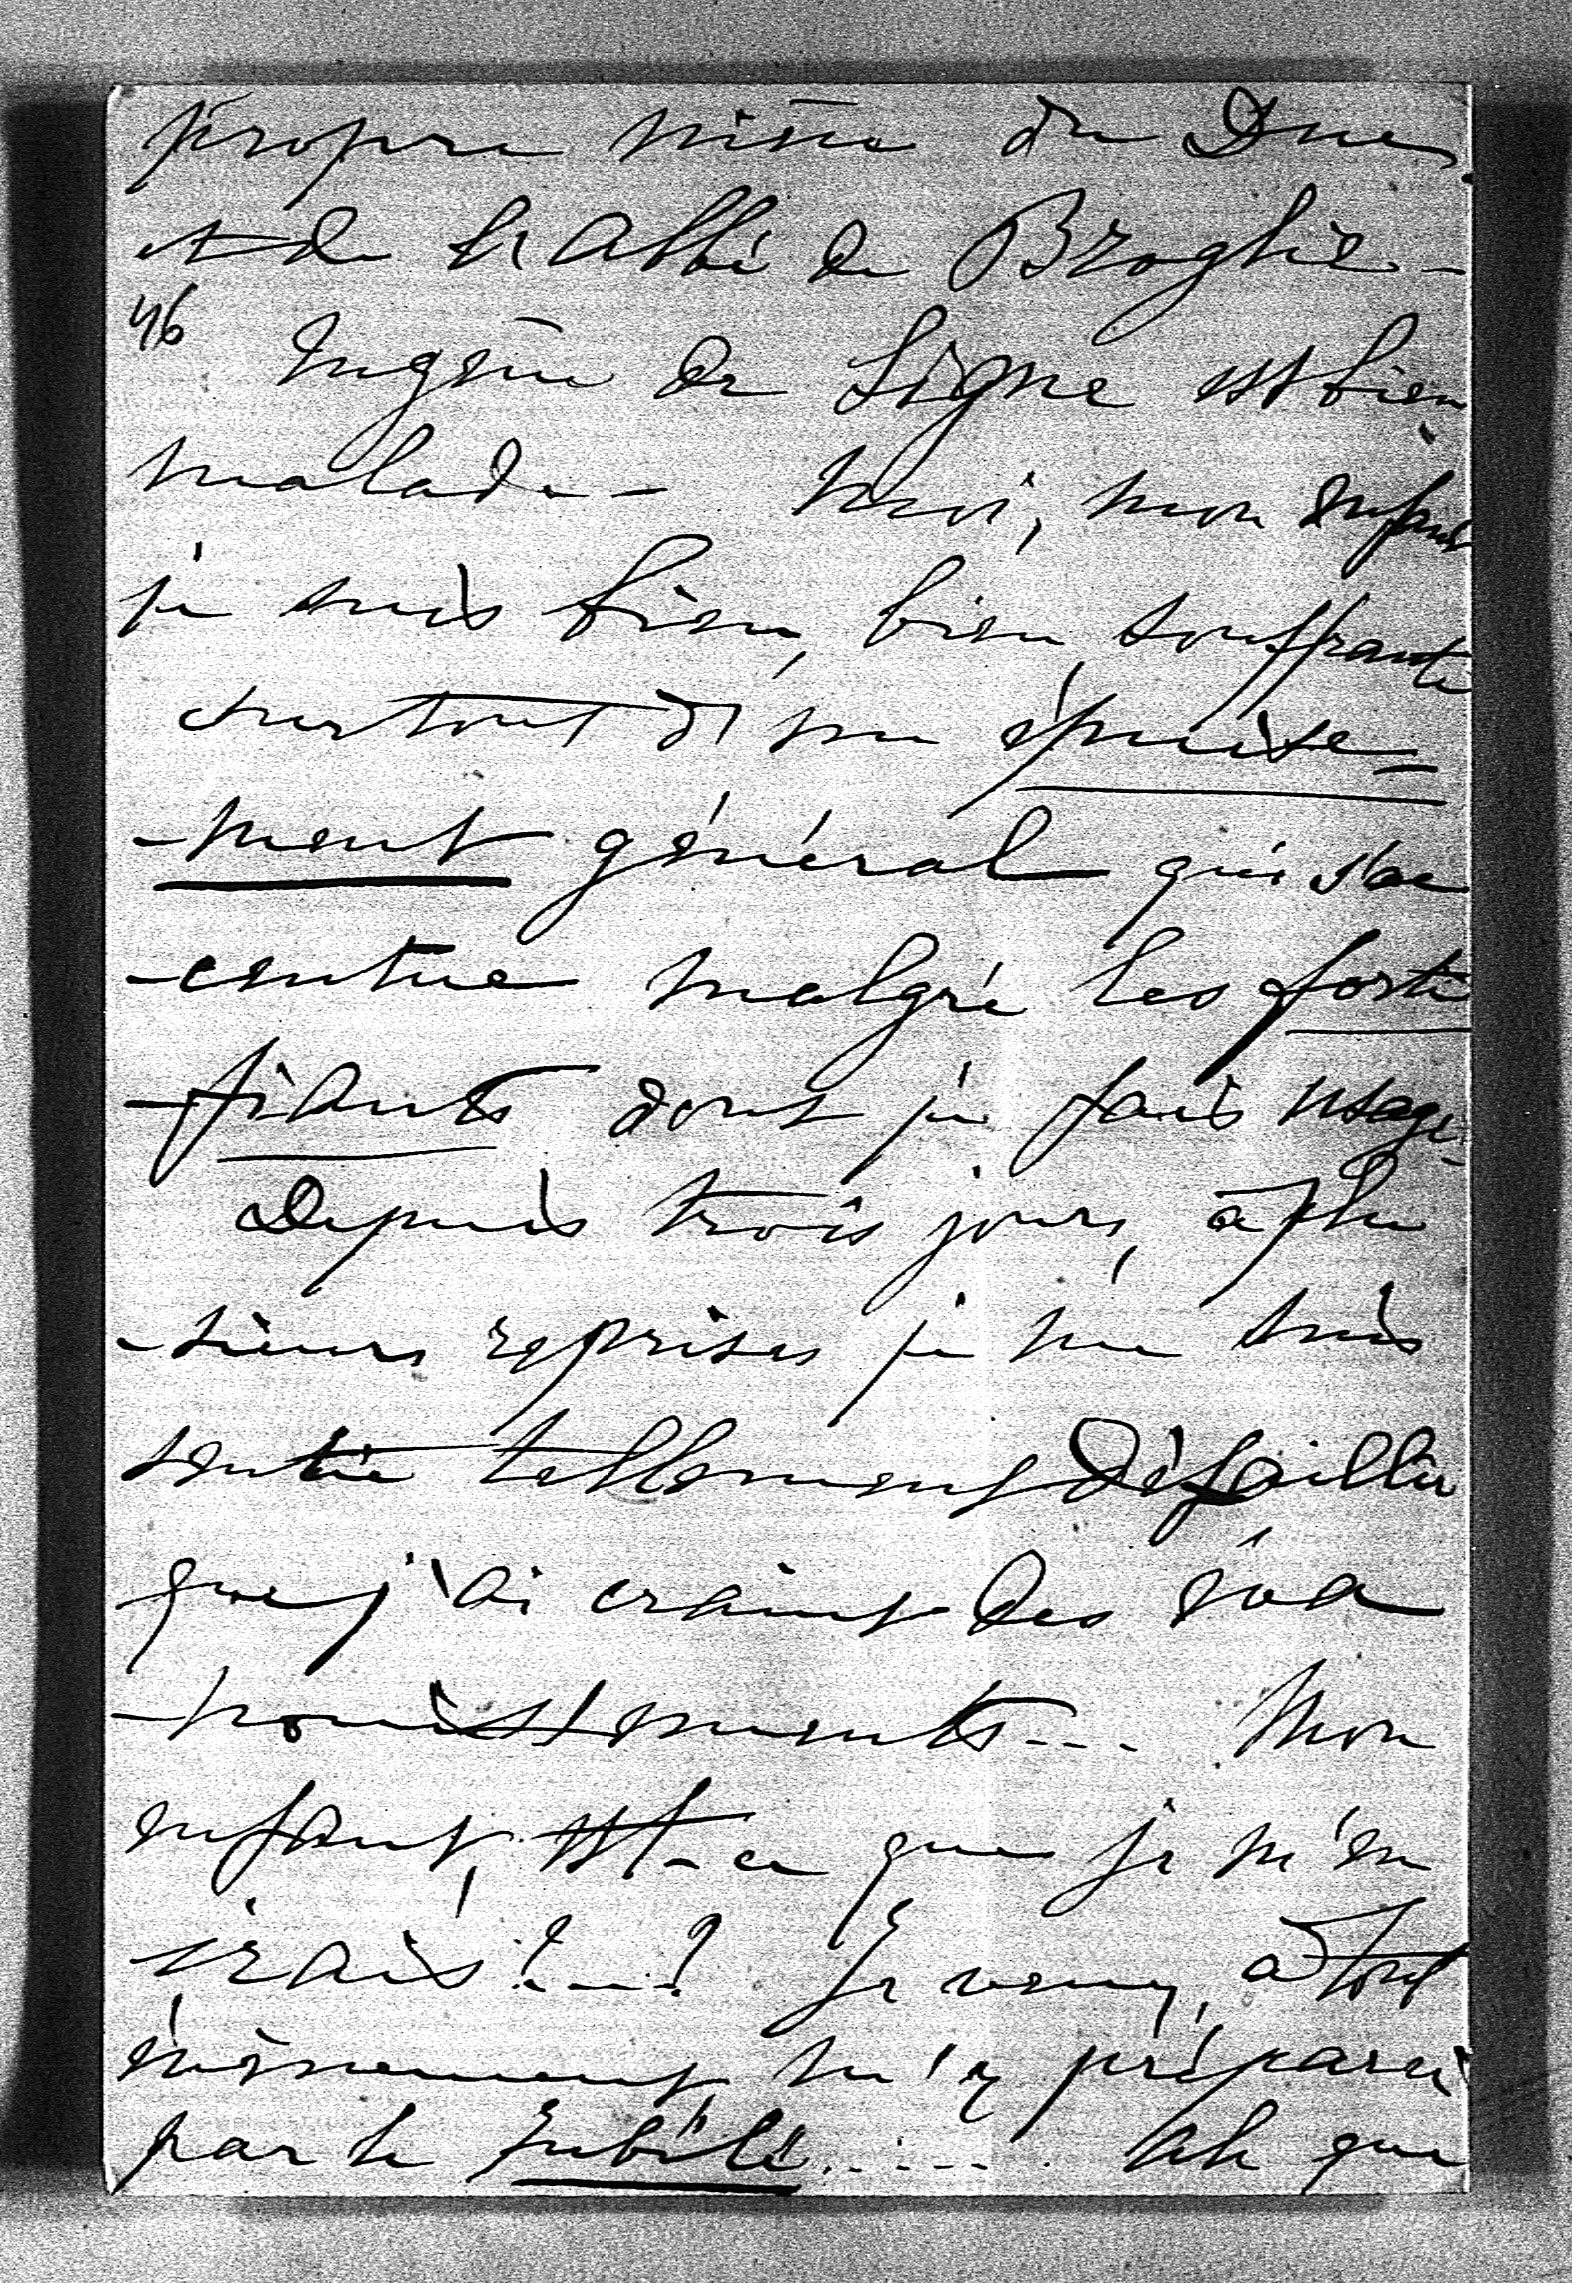 propre nièce du Duc
et de l'Abbé de Broglie -
46
Eugène de Ligne est bien
malade - Moi, mon enfant
je suis bien, bien, souffrante
surtout d'un épuise-
-ment général qui s'ac
-centue malgré les forti
-fiants dont je fais usage.
Depuis trois jours, à plu
-sieurs reprises je me suis
sentie tellement défaillir
que j'ai craint des éva
-nouissements... Mon
enfant, est-ce que je m'en
irais?...? Je veux, à tout
évènement, m'y préparer
par le Jubilé..... Ah que